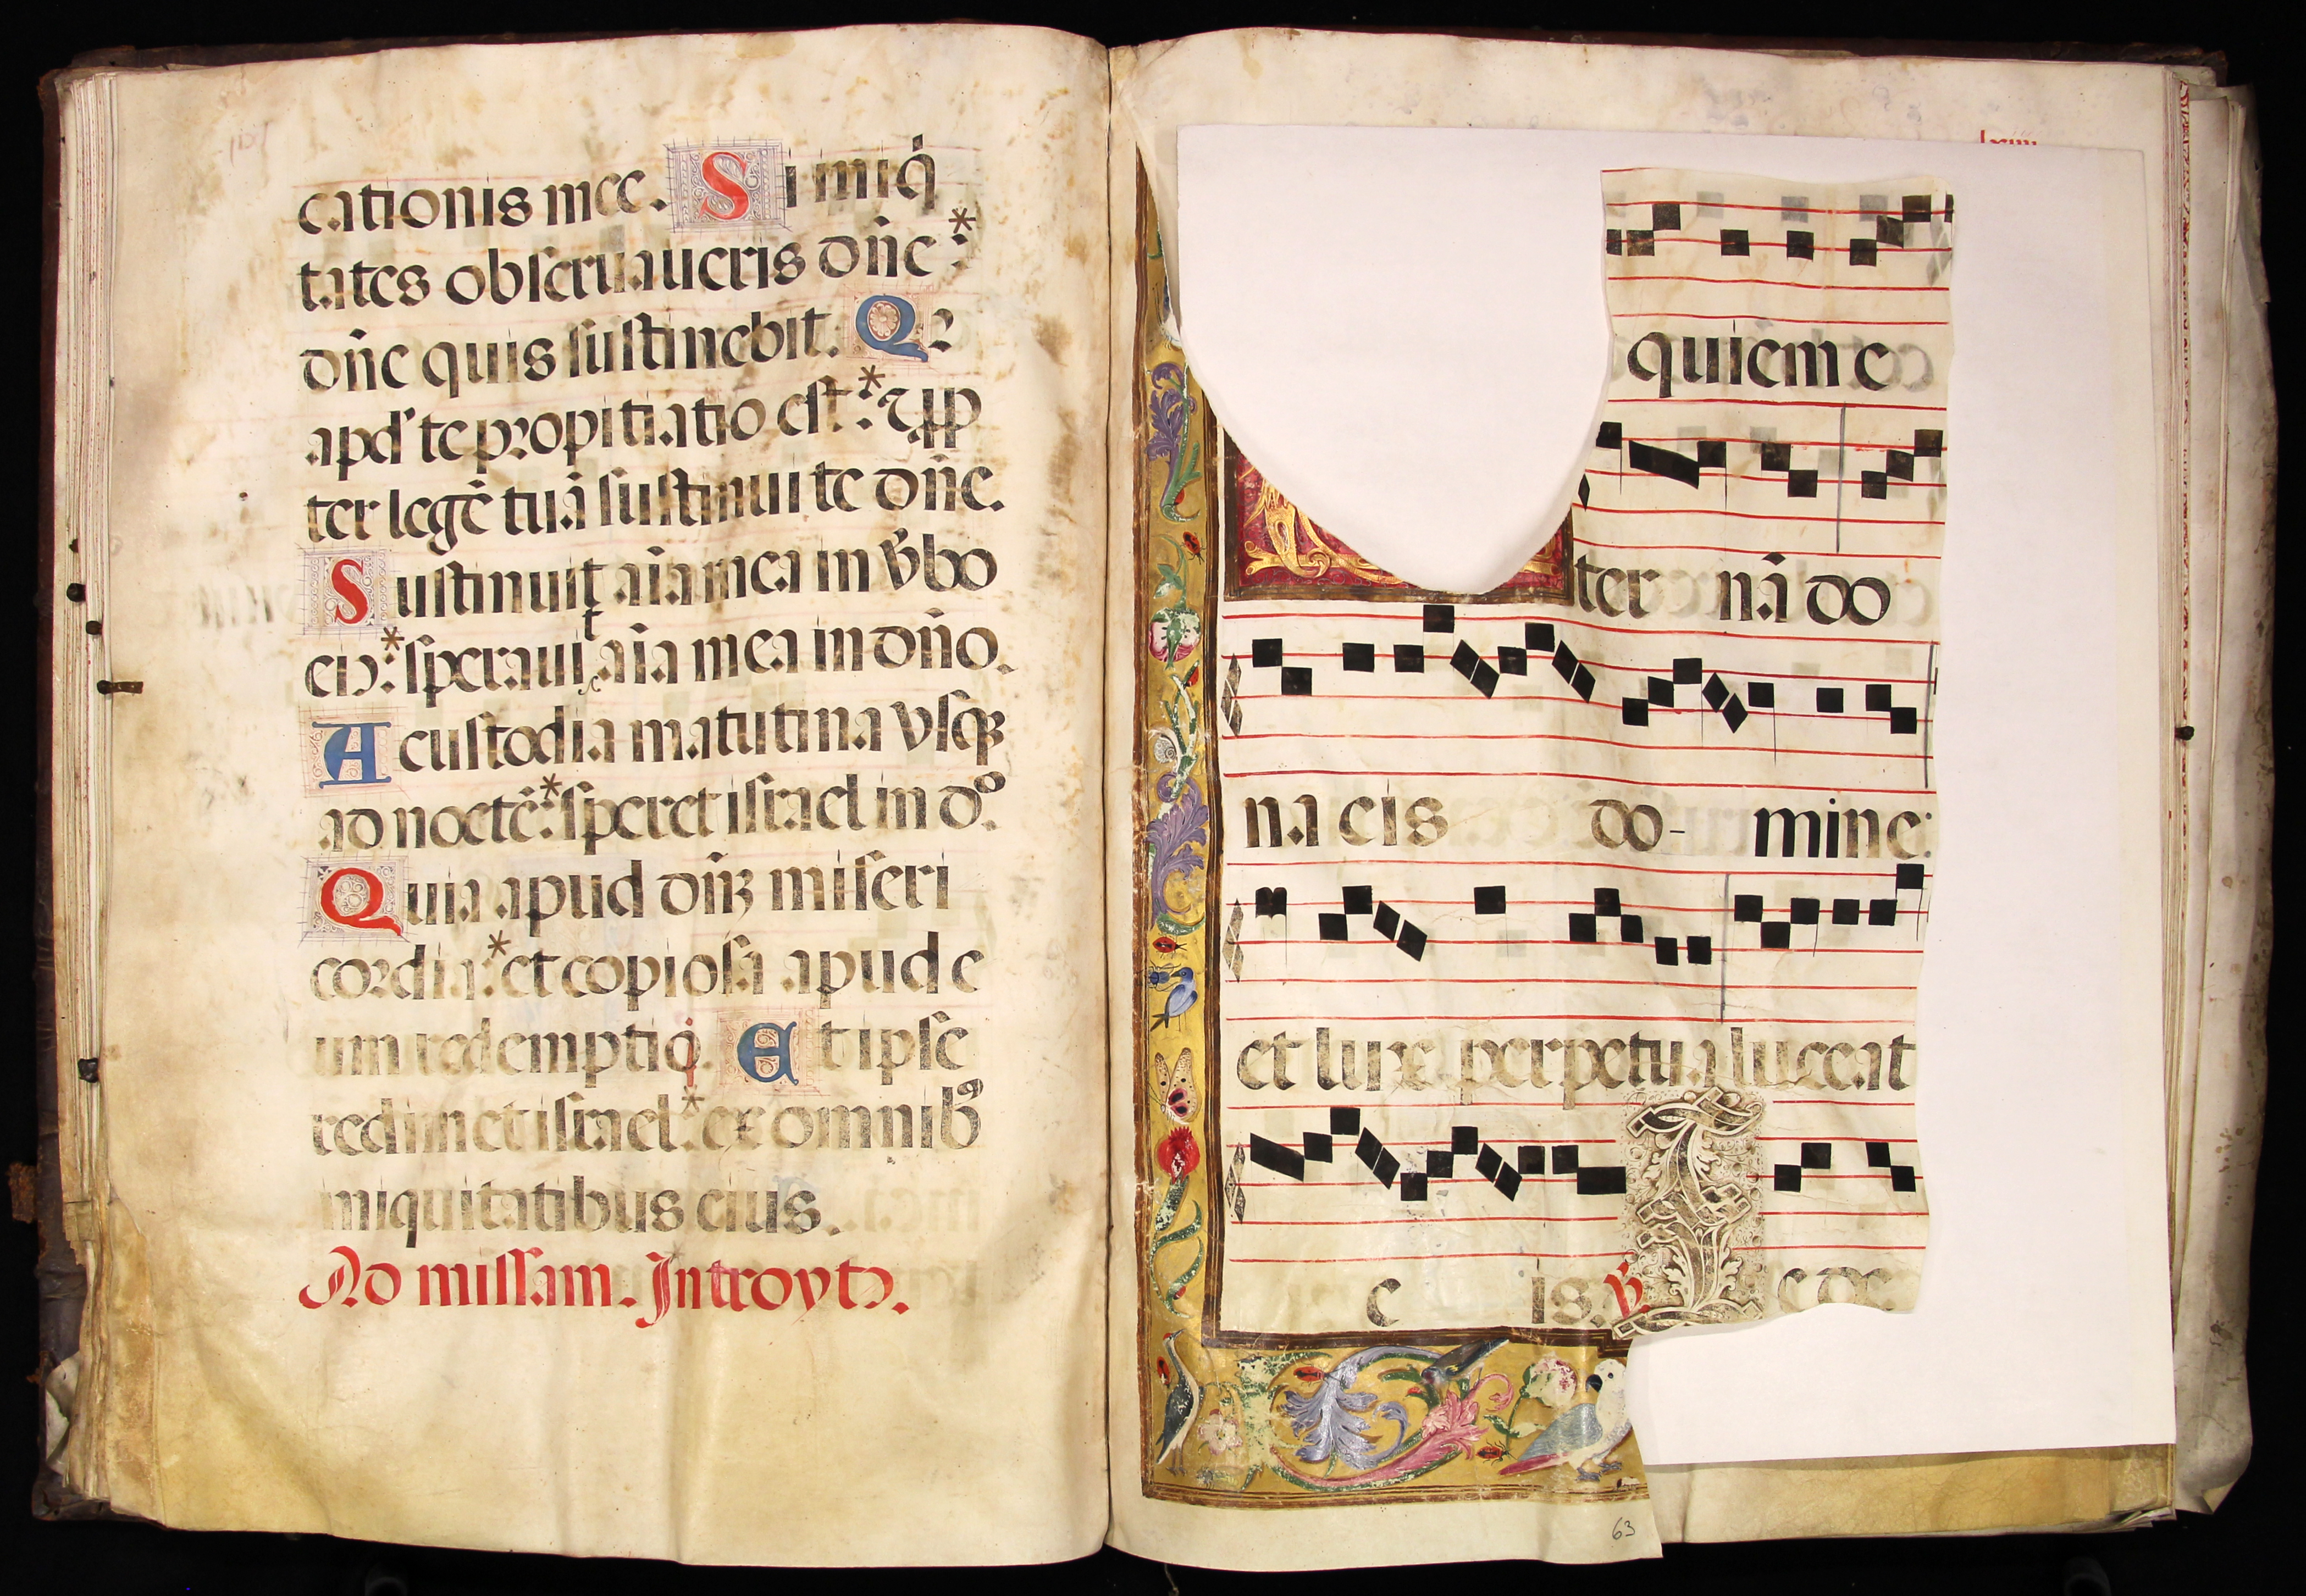 cationis mee. Si iniq̇
tates obseruaueris dñe *:
dñe quis sustinebit. Qꝛ
apd' te propitiatio est *: ⁊ ꝓp
ter legē tuā sustinui te dñe.
Sustinuit aīa mea in v̄bo
eiꝰ *: sperauit aīa mea in dño.
A custodia matutina vsqꝫ
ad noctē *: speret israel in dº.
Quia apud dñꝫ miseri
cordia *: et copiosa apud e
um redemptio. Et ipse
redimet israel *: ex omnibꝰ
iniquitatibus eius.
Ad missam. Introytꝰ.
lxiii
quiem e
ter nā do
na eis do- mine:
et lux perpetua luceat
e is. ℣ T e de
63